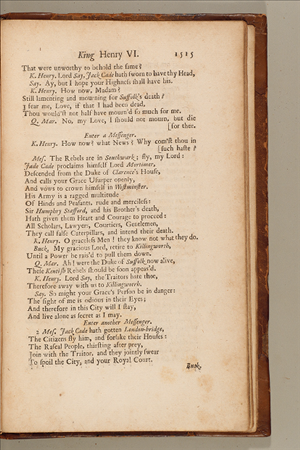 King Henry VI. 1515
That were unworthy to behold the same?
K. Henry. Lord Say, Jack Cade hath sworn to have thy Head,
Say. Ay, but I hope your Highness shall have his.
K. Henry. How now, Madam?
Still lamenting and mourning for Suffolk's death?
I fear me, Love, if that I had been dead,
Thou would'st not half have mourn'd so much for me.
Q. Mar. No, my Love, I should not mourn, but die
[for thee.
Enter a Messenger.
K. Henry. How now? what News? Why com'st thou in
[such haste?
Mes. The Rebels are in Southwark; fly, my Lord:
Jade Cade proclaims himself Lord Mortimer,
Descended from the Duke of Clarence's House,
And calls your Grace Usurper openly,
And vows to crown himself in Westminster.
His Army is a ragged multitude
Of Hinds and Peasants, rude and merciless:
Sir Humphry Stafford, and his Brother's death,
Hath given them Heart and Courage to proceed:
All Scholars, Lawyers, Courtiers, Gentlemen,
They call false Caterpillars, and intend their death.
K. Henry. O graceless Men! they know not what they do.
Buck. My gracious Lord, retire to Killingworth,
Until a Power be rais'd to put them down.
Q. Mar. Ah! were the Duke of Suffolk now alive,
These Kentish Rebels should be soon appeas'd.
K. Henry. Lord Say, the Traitors hate thee,
Therefore away with us to Killingworth.
Say. So might your Grace's Person be in danger:
The sight of me is odious in their Eyes;
And therefore in this City will I stay,
And live alone as secret as I may.
Enter another Messenger.
2 Mes. Jack Cade hath gotten London-bridge,
The Citizens fly him, and forsake their Houses:
The Rascal People, thirsting after prey,
Join with the Traitor, and they jointly swear
To spoil the City, and your Royal Court.
Buck,